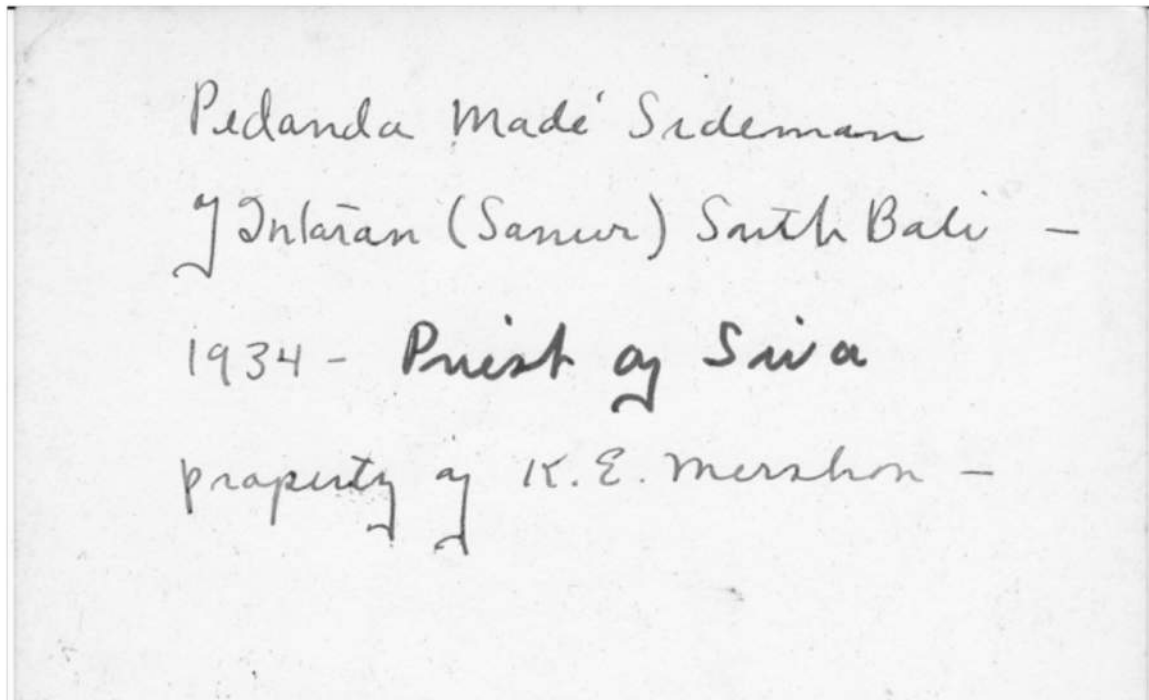 Pedanda Madé Sideman
of Intaran (Sanur) South Bali –
1934 – Priest of Siva
property of K. E. Mershon –